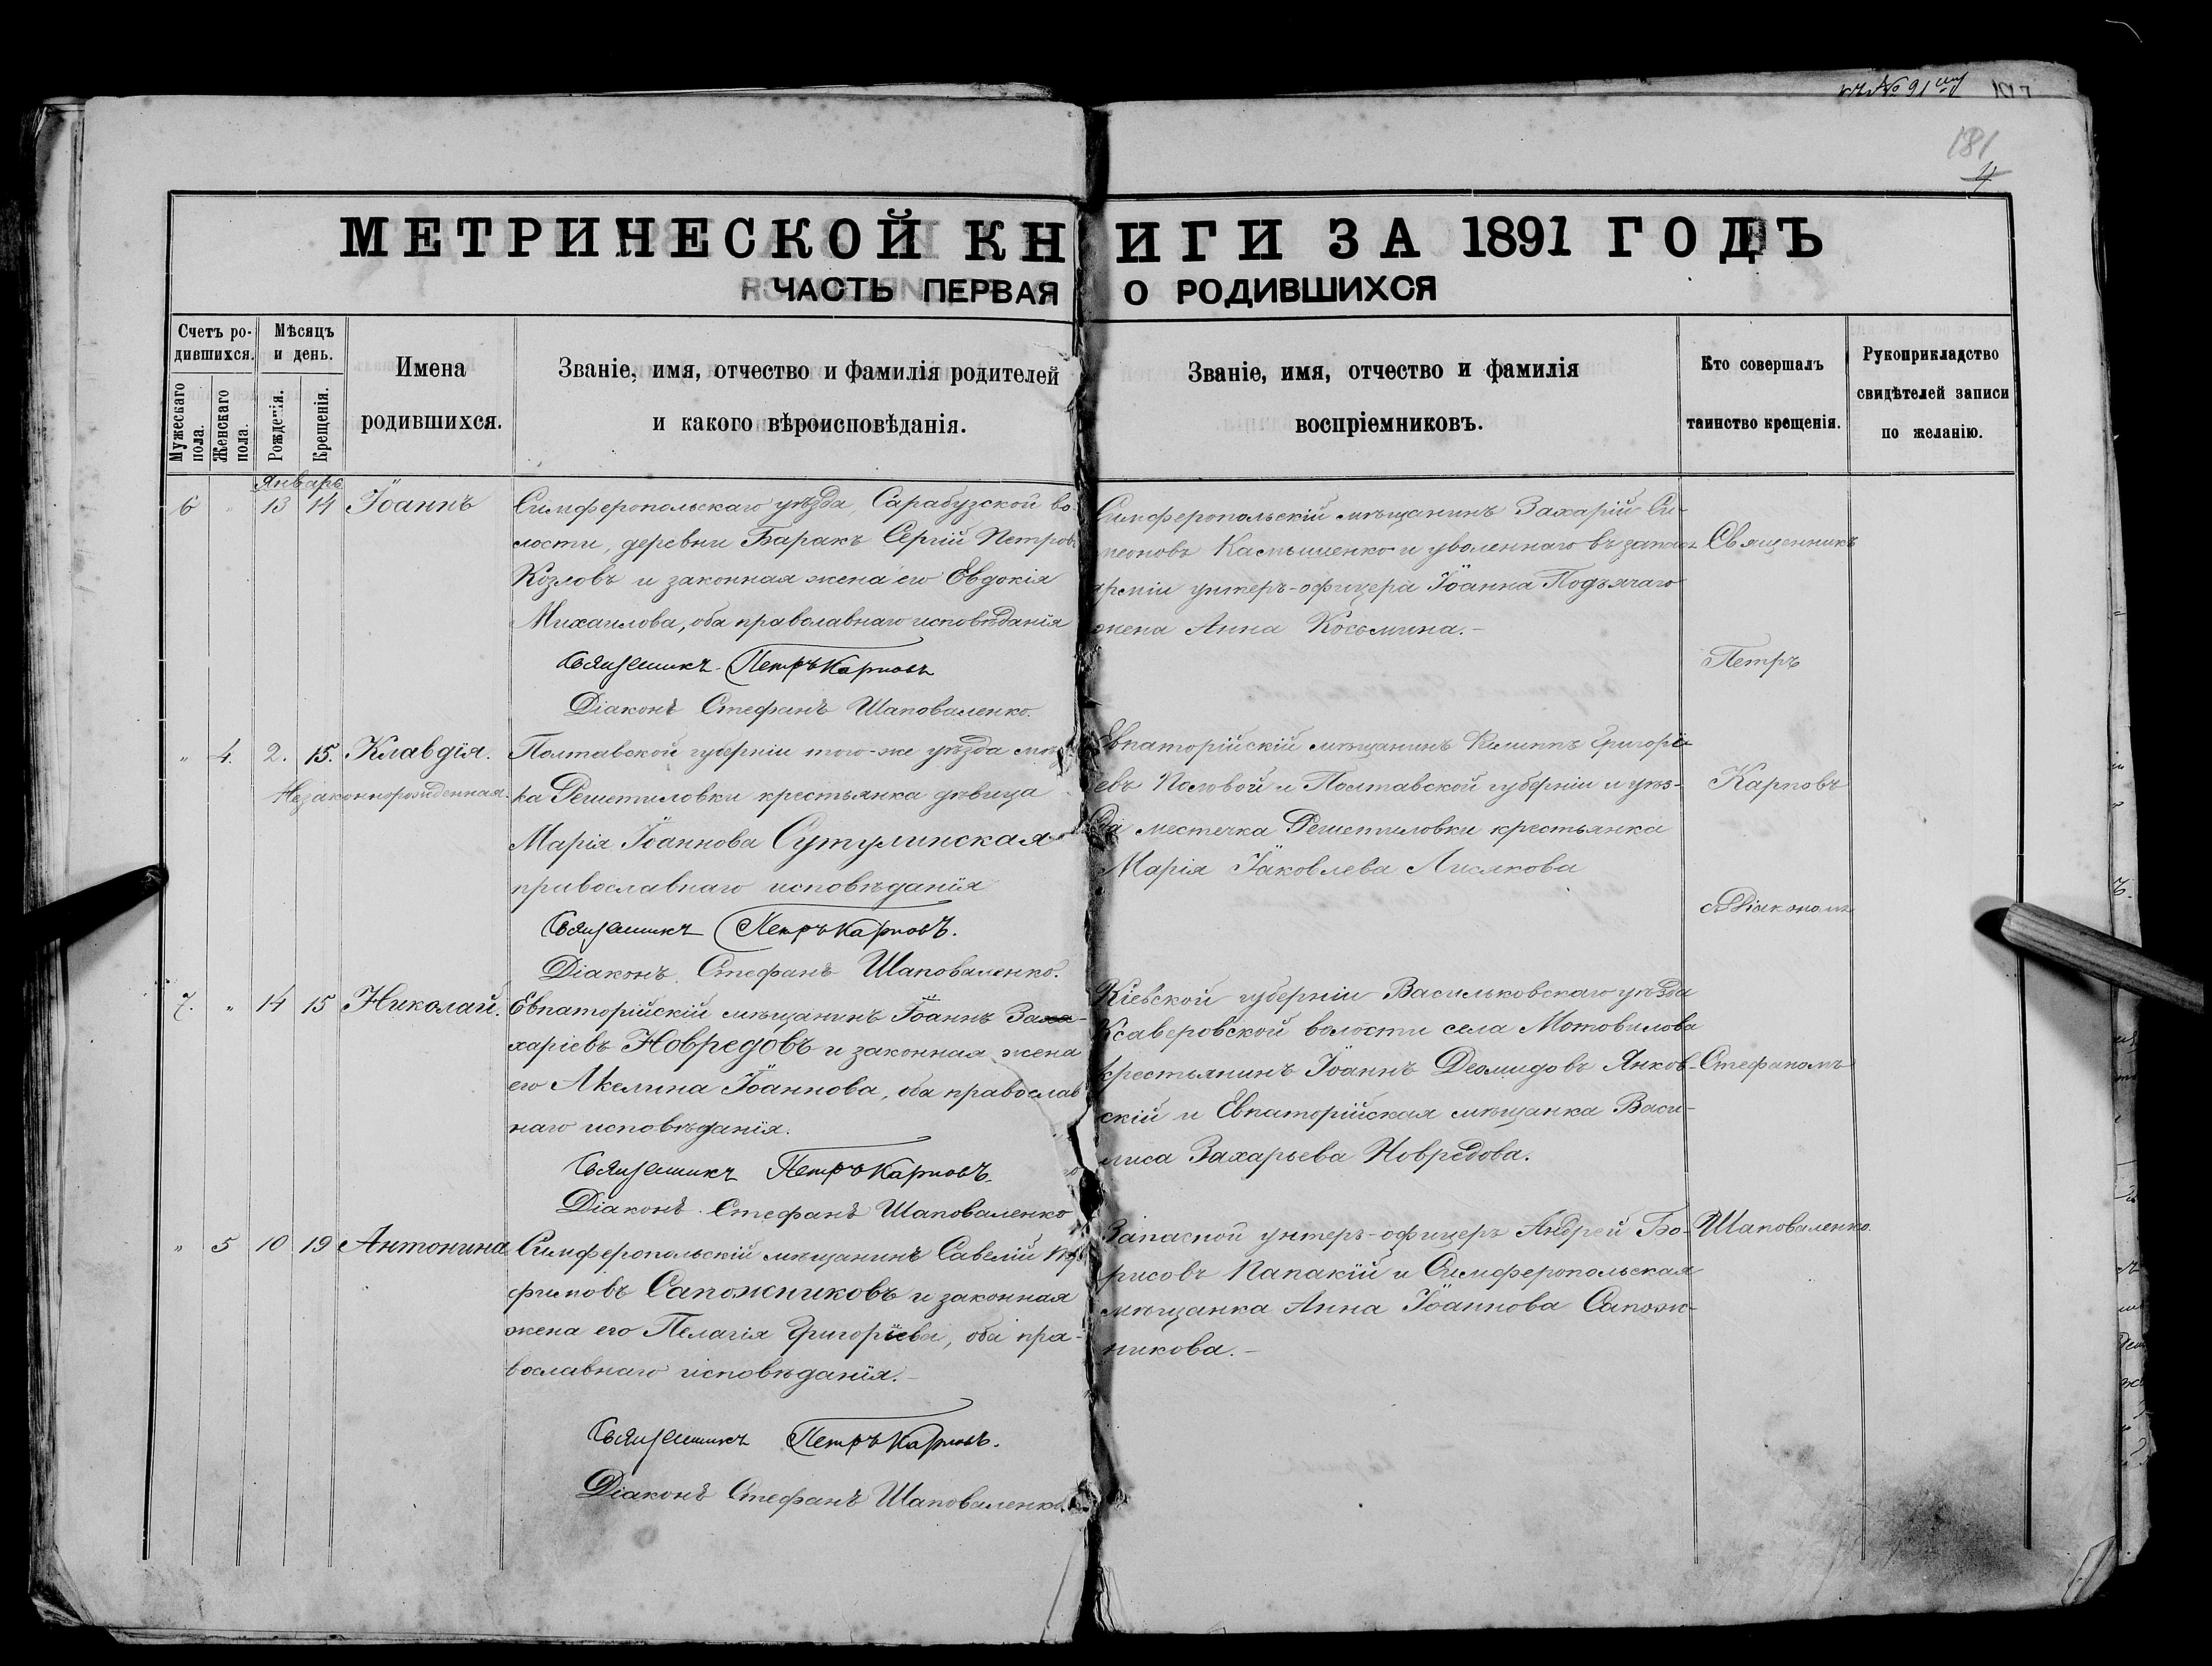 181
4
МЕТРИЧЕСКОЙ КНИГИ ЗА 1891 ГОДЪ
ЧАСТЬ ПЕРВАЯ О РОДИВШИХСЯ
Счетъ ро-
дившихся.
Мужескаго
пола.
Женскаго
пола.
Мѣсяцъ
и день.
Рожденія.
Крещенія.
Имена
родившихся.
Званіе, имя, отчество и фамилія родителей
и какого вѣроисповѣданія.
Званіе, имя, отчество и фамилія
воспріемниковъ.
Кто совершалъ
таинство крещенія.
Рукоприкладство
свидѣтелей записи
по желанію.
Январь
6 " 13 14 Іоаннъ
Симферопольскаго уѣзда, Сарабузской во-
лости, деревни Баракъ Сергій Петровъ
Козловъ и законная жена его Евдокія
Михаилова, оба православнаго исповѣданія
Священникъ Петръ Карповъ
Діаконъ Стефанъ Шаповаленко.
Симферопольскій мѣщанинъ Захарій Си-
меоновъ Камышенко и уволеннаго въ запасъ
арміи унтеръ-офицера Іоанна Подъячаго
жена Анна Косьмина.-
" 4. 2. 15. Клавдія.
Незаконнорожденная.
Полтавской губерніи того-же уѣзда
ка Решетиловки крестьянка дѣвица
Марія Іоаннова Сутулинская
православнаго исповѣданія
Священникъ Петръ Карповъ.
Діаконъ Стефанъ Шаповаленко.
Евпаторійскій мѣщанинъ Филиппъ Григорі-
евъ Половой и Полтавской губерніи и уѣз-
да местечка Решетиловки крестьянка
Марія Іаковлева Лисякова
7. " 14 15 Николай.
Евпаторійскій мѣщанинъ Іоаннъ За
харіевъ Новредовъ и законная жена
его Акелина Іоаннова, оба православ
наго исповѣданія.
Священникъ Петръ Карповъ.
Діаконъ Стефанъ Шаповаленко
Кіевской губерніи Васильковскаго уѣзда
Ксаверовской волости села Мотовилова
крестьянинъ Іоаннъ Деомидовъ Янков-
скій и Евпаторійская мѣщанка Васи-
лиса Захарьева Новредова.
" 5 10 19 Антонина
Симферопольскій мѣщанинъ Савелій
фимовъ Сапожниковъ и законная
жена его Пелагія Григоріева, оба пра-
вославнаго исповѣданія.-
Священникъ Петръ Карповъ.
Діаконъ Стефанъ Шаповаленко
Запасной унтеръ-офицеръ Андрей Бо-
рисовъ Папакій и Симферопольская
мѣщанка Анна Іоаннова Сапож-
никова.-
Священникъ
Петръ
Карповъ
съ Діакономъ
Стефаномъ
Шаповаленко.